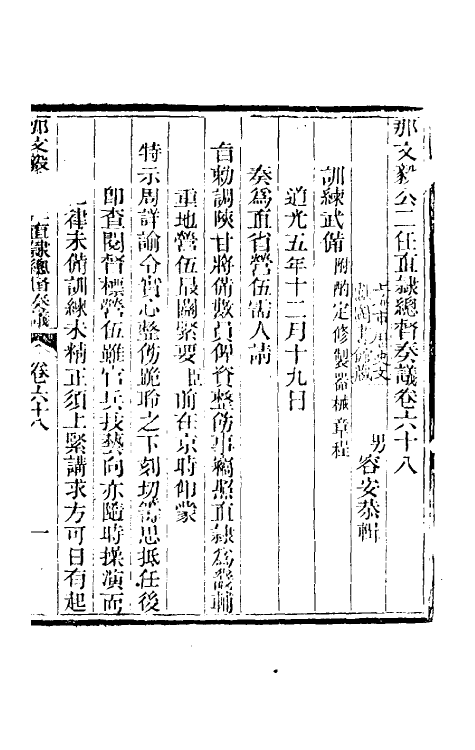 那文毅公二任直隸總督奏議卷六十八
男容安恭輯
訓練武備 附酌定修製器械章程
道光五年十二月十九日
奏爲直省營伍需人請
旨勅調陝甘將備數員俾資整飭事竊照直隸爲畿輔
重地營伍最關緊要臣前在京時仰蒙
特示周詳諭令實心整飭跪聆之下刻切籌思抵任後
卽查閱督標營伍雖官兵技藝向亦隨時操演而
律未備訓練未精正須上緊講求方可日有起
那文毅
直隸總督奏議
卷六十八
一